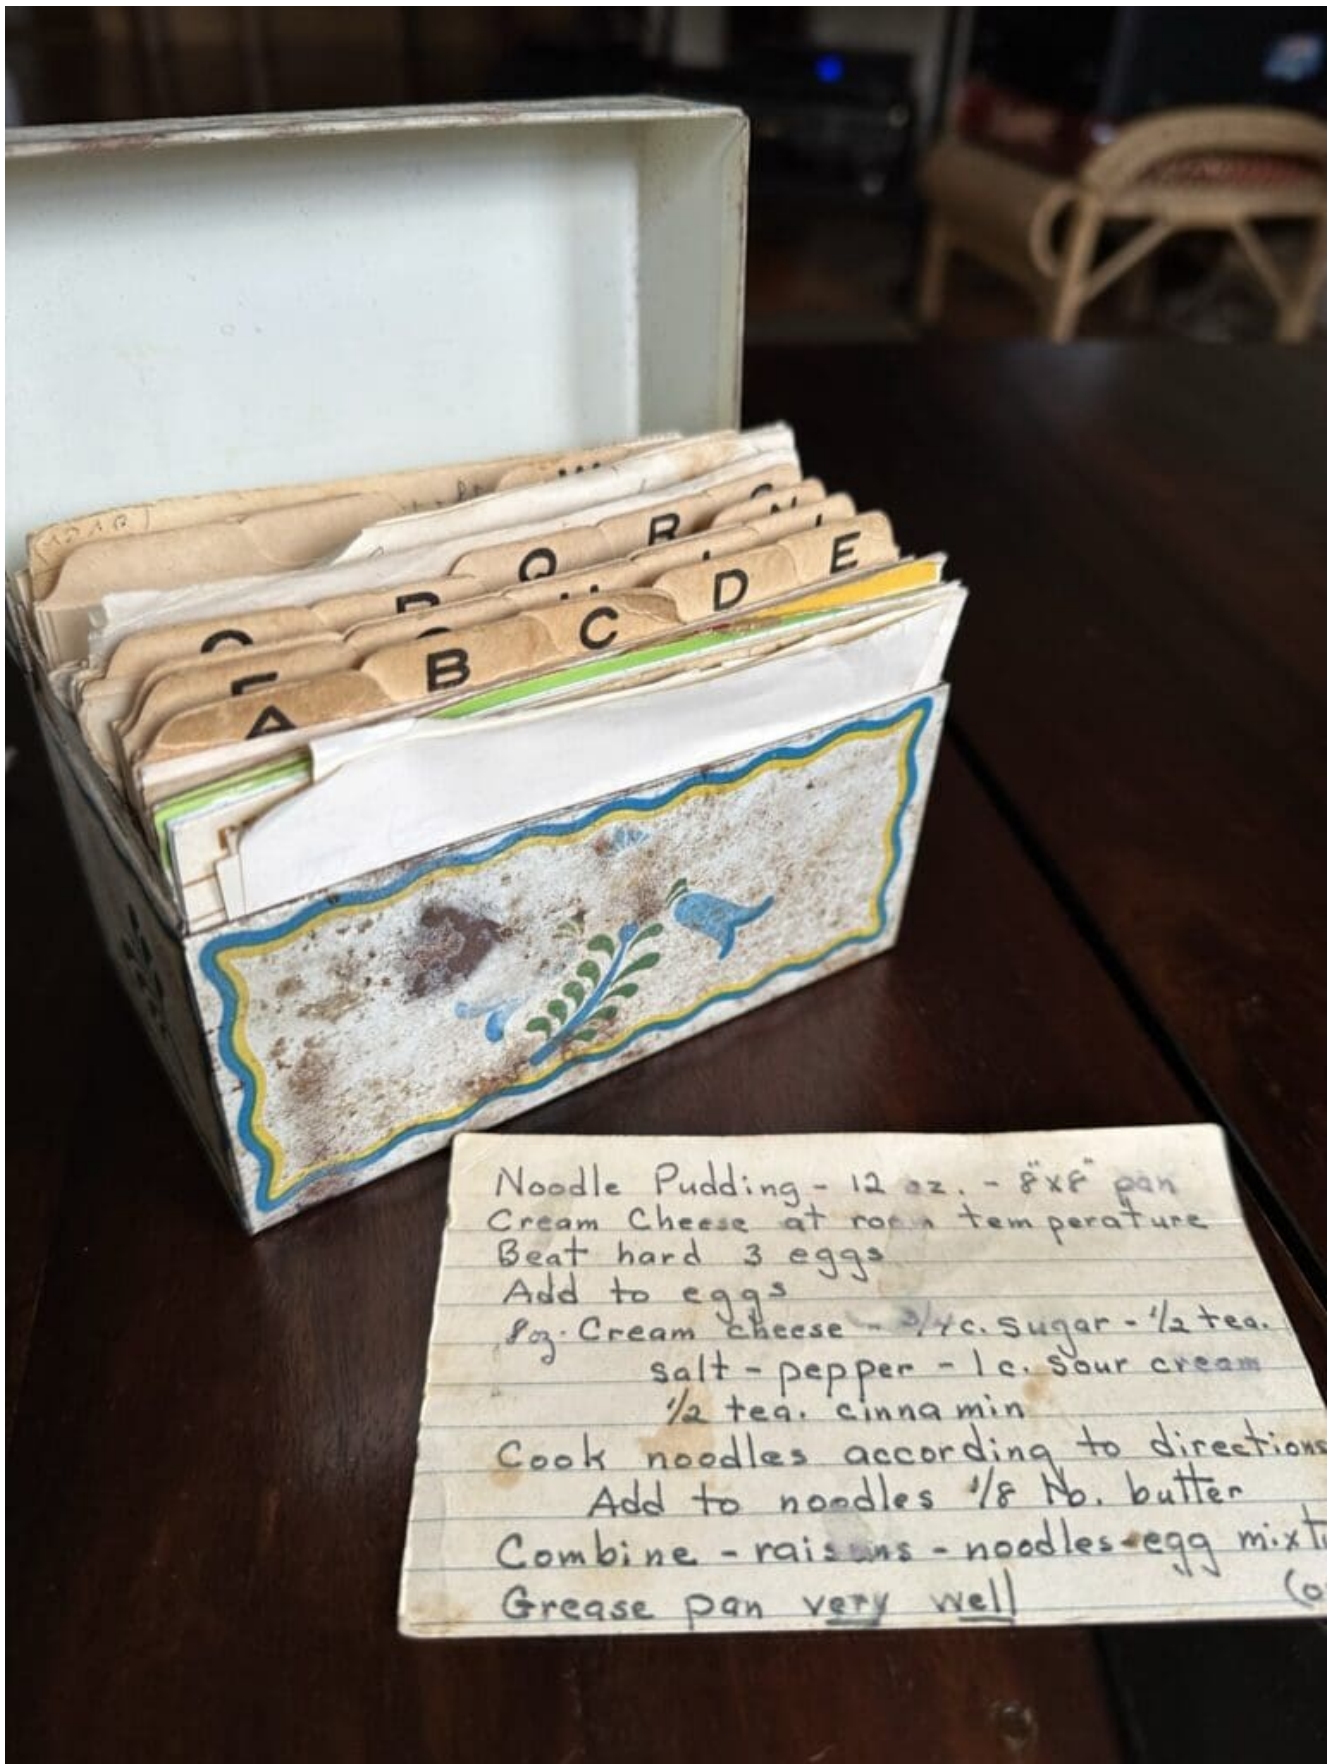 W
Q
R
N
D
E
C
B
A
Noodle Pudding - 12 oz. - 8"x8" pan
Cream Cheese at room temperature
Beat hard 3 eggs
Add to eggs
8oz. Cream cheese - 3/4 c. sugar - 1/2 tea.
salt - pepper - 1 c. sour cream
1/2 tea. cinnamin
Cook noodles according to directions
Add to noodles 1/8 lb. butter
Combine - raisins - noodles - egg mixtu
Grease pan very well (o